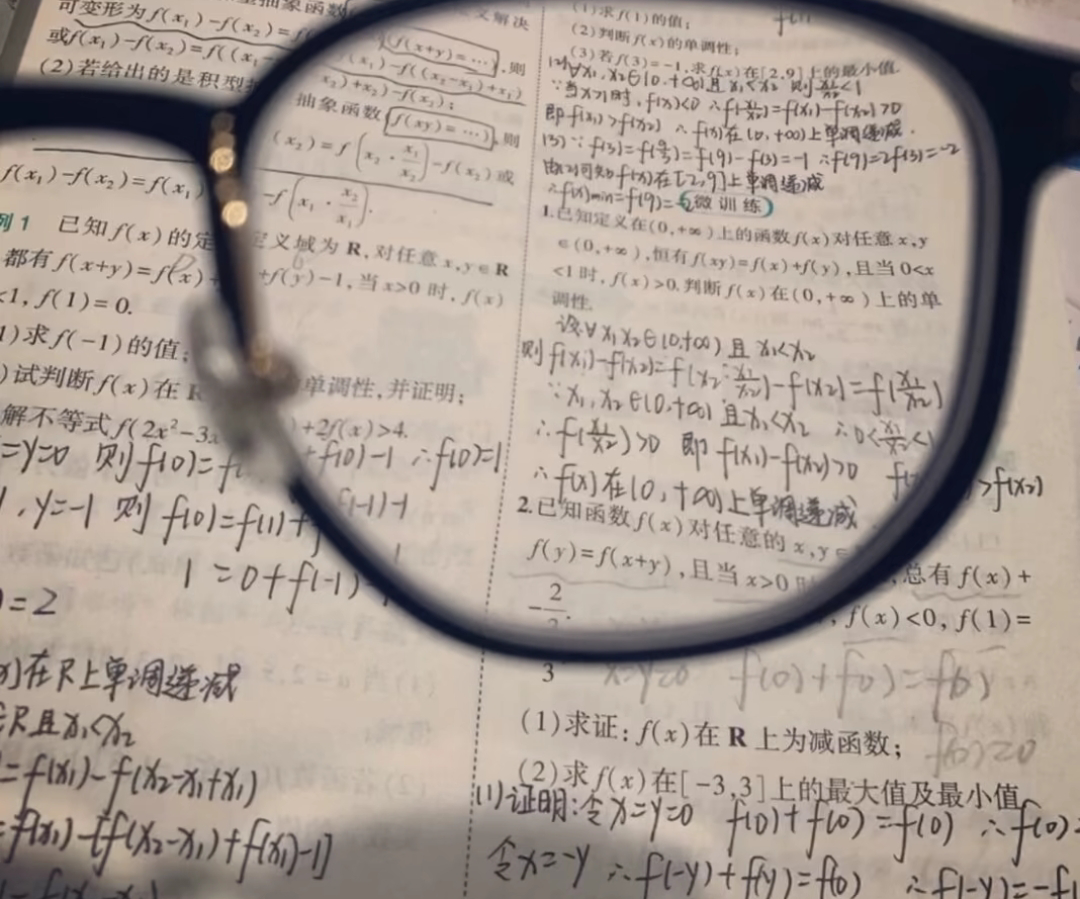 可变形为f(x₁)-f(x₂)=f(
或f(x₁)-f(x₂)=f((x₁-
(2)若给出的是积型抽
义解决
f(x+y)=…,则
(x₁)-f((x₂-x₁)+x₁)
x₂)+x₂)-f(x₂);
抽象函数f(xy)=…,则
(x₂)=f(x₂·x₁/x₂)-f(x₂)或
f(x₁)-f(x₂)=f(x₁)
-f(x₁·x₂/x₁).
例1 已知f(x)的定义域为R,对任意x,y∈R
都有f(x+y)=f(x)+f(y)-1,当x>0时,f(x)
<1,f(1)=0.
1)求f(-1)的值;
)试判断f(x)在R 的单调性,并证明;
解不等式f(2x²-3x )+2f(x)>4.
=y=0 则f(0)=f( +f(0)-1 ∴f(0)=1
,y=-1 则f(0)=f(1)+f(-1)-1
1=0+f(-1)-1
)=2
x)在R上单调递减
∈R且x₁<x₂
=f(x₁)-f(x₂-x₁+x₁)
=f(x₁)-[f(x₂-x₁)+f(x₁)-1]
(1)求f(1)的值;
(2)判断f(x)的单调性;
(3)若f(3)=-1,求f(x)在[2,9]上的最小值.
(2)∀x₁,x₂∈(0,+∞)且x₁<x₂ 则x₁/x₂<1
∵当x>1时,f(x)<0 ∴f(x₁/x₂)=f(x₁)-f(x₂)>0
即f(x₁)>f(x₂) ∴f(x)在(0,+∞)上单调递减.
(3)∵f(3)=f(9/3)=f(9)-f(3)=-1 ∴f(9)=2f(3)=-2
由(2)可知f(x)在[2,9]上单调递减
∴f(x)min=f(9)=-2
微训练
1.已知定义在(0,+∞)上的函数f(x)对任意x,y
∈(0,+∞),恒有f(xy)=f(x)+f(y),且当0<x
<1时,f(x)>0.判断f(x)在(0,+∞)上的单
调性.
设∀x₁x₂∈(0,+∞)且x₁<x₂
则f(x₁)-f(x₂)=f(x₂·x₁/x₂)-f(x₂)=f(x₁/x₂)
∵x₁,x₂∈(0,+∞)且x₁<x₂ ∴0<x₁/x₂<1
∴f(x₁/x₂)>0 即f(x₁)-f(x₂)>0 f(x₁)>f(x₂)
∴f(x)在(0,+∞)上单调递减
2.已知函数f(x)对任意的x,y∈ 总有f(x)+
f(y)=f(x+y),且当x>0时,f(x)<0,f(1)=
-2/3.
x=y=0 f(0)+f(0)=f(0)
f(0)=0
(1)求证:f(x)在R上为减函数;
(2)求f(x)在[-3,3]上的最大值及最小值.
(1)证明:令x=y=0 f(0)+f(0)=f(0) ∴f(0)=
令x=-y ∴f(-y)+f(y)=f(0) ∴f(-y)=-f(